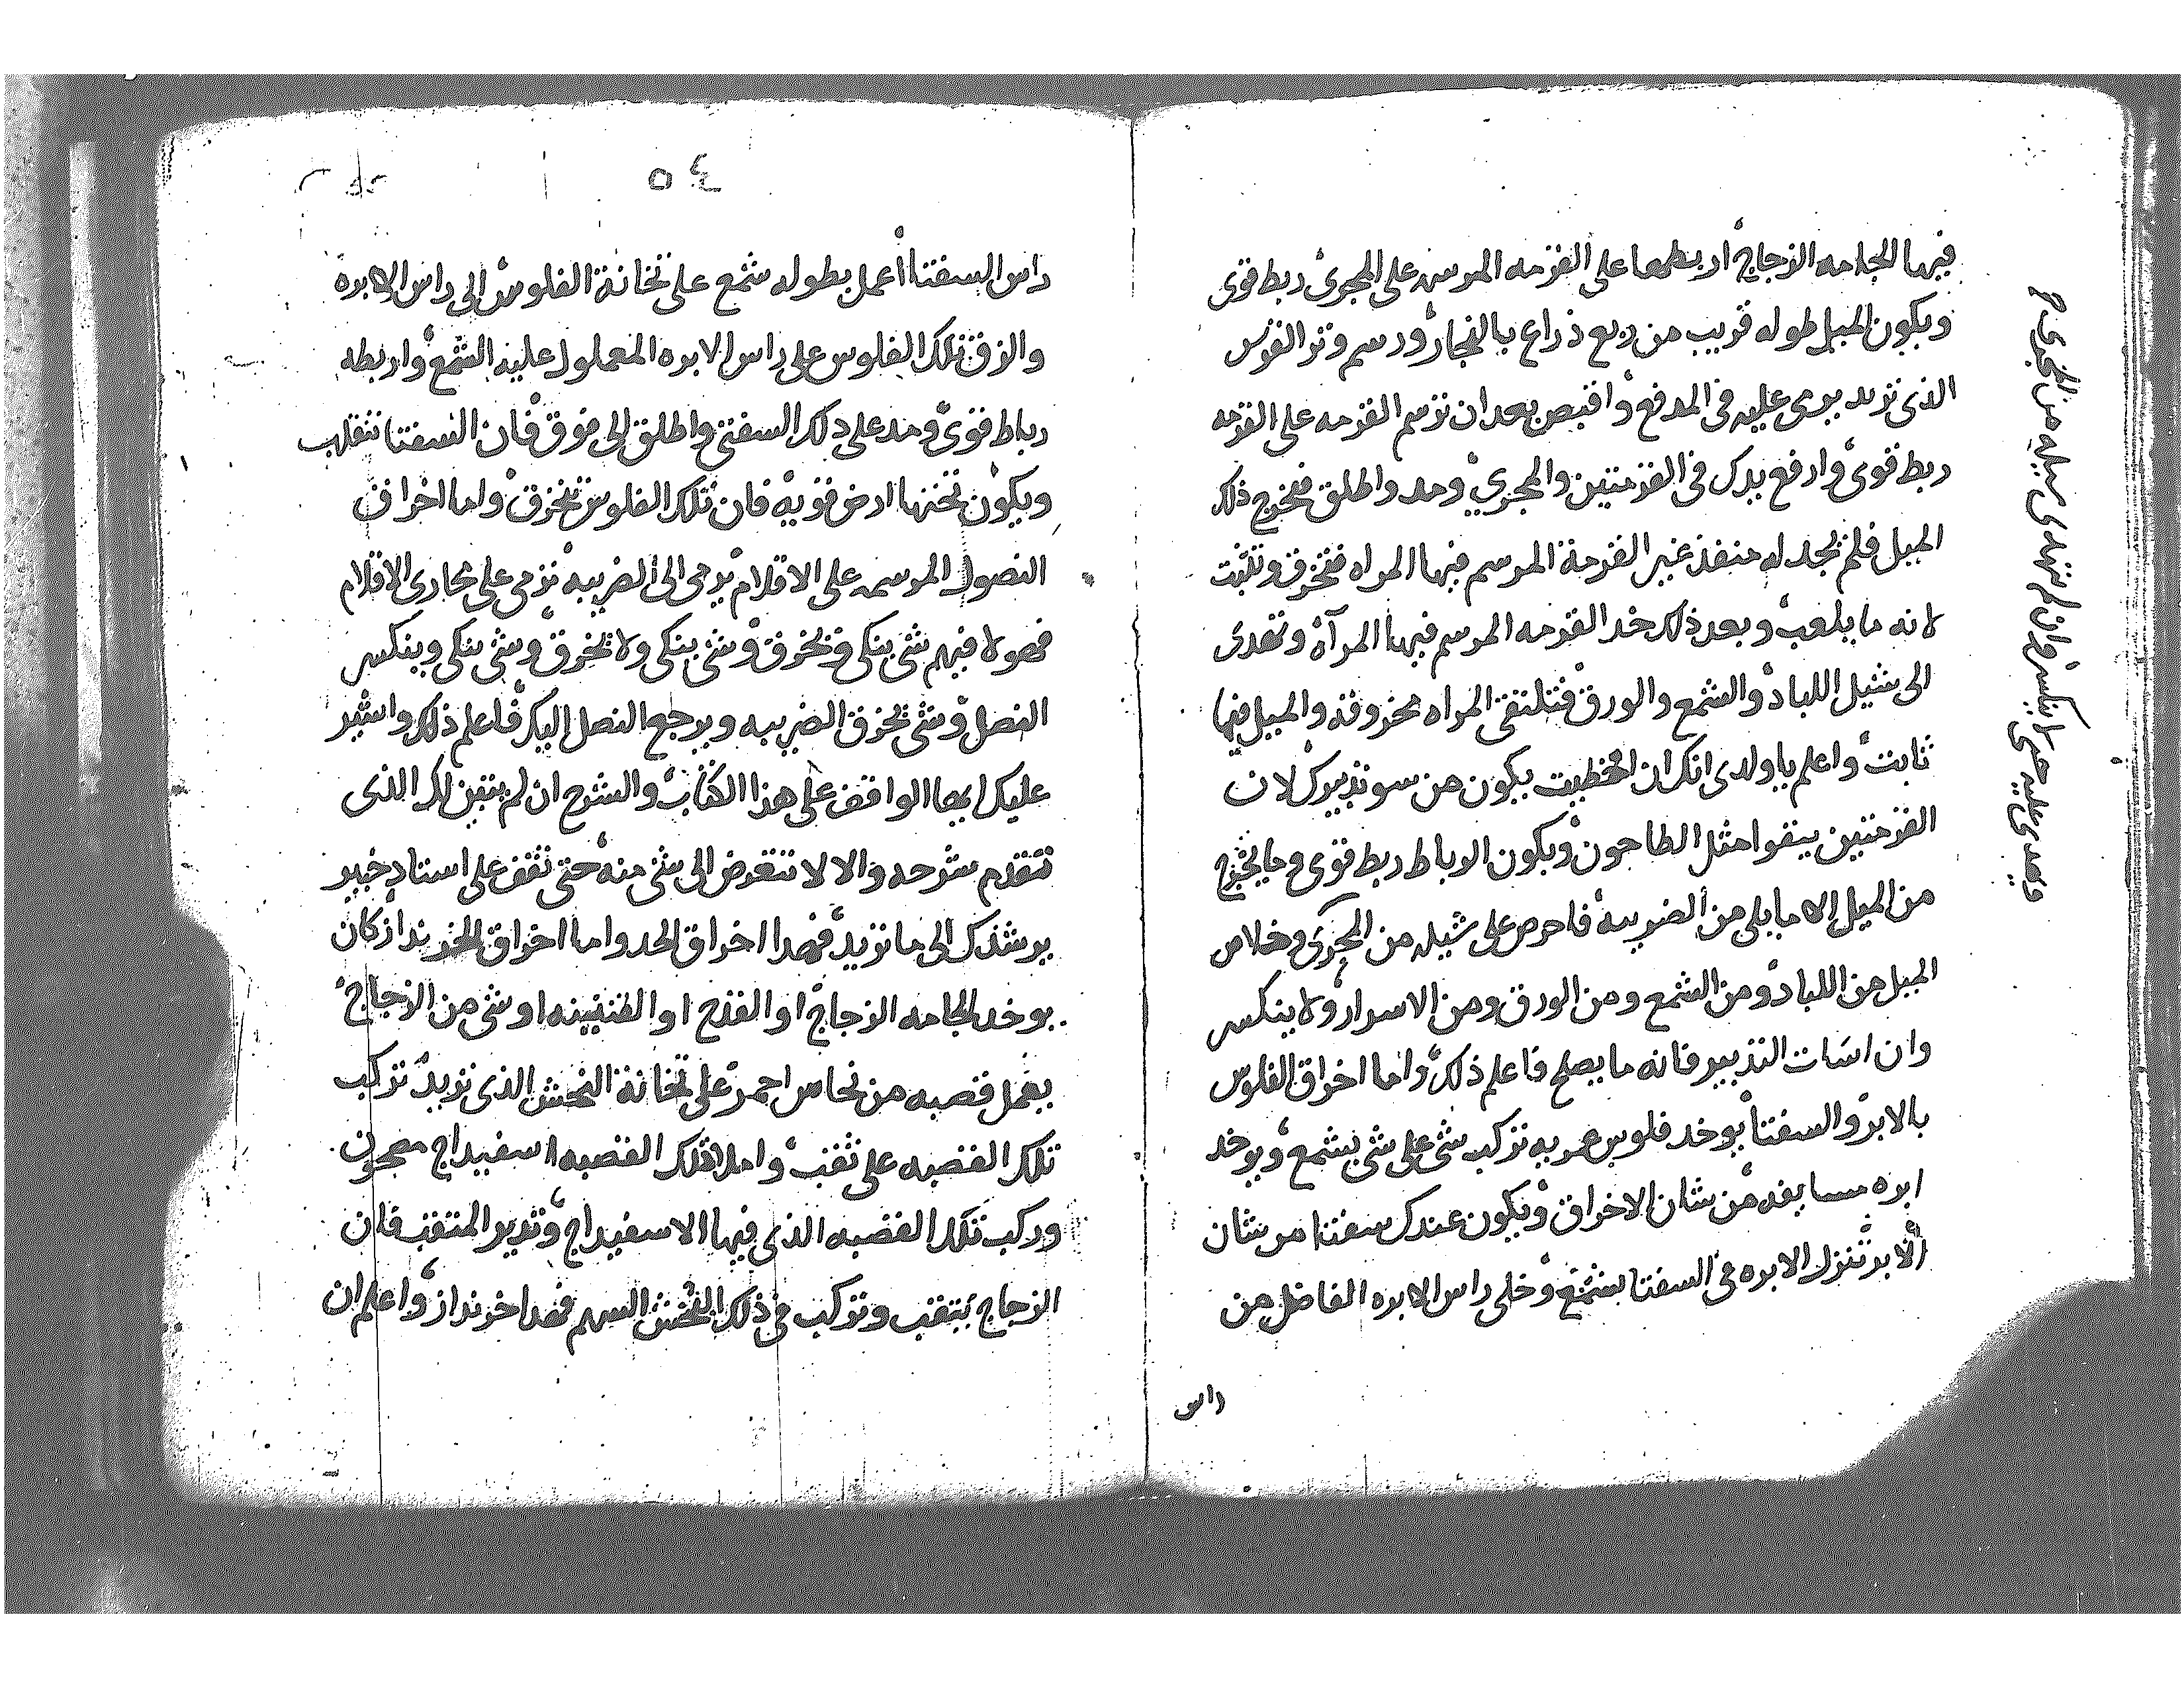 فيها الجامه الزجاج اربطها على القرمه الموسمه على المجرى ربط قوى
ويكون الميل طوله قريب من ربع ذراع بالنجار ورسم وتر القوس
الذى تريد يرمى عليه فى المدفع واقبض بعد ان ترسم القرمه على القرمه
ربط قوى وارفع يدك فى القرمتين والمجرى ومد واطلق فيخرج ذلك
الميل فلم يجد له منفذ غير القرمة الموسم فيها المراه فتخرق وتثبت
لانه ما يلعب وبعد ذلك خد القرمه الموسم فيها المرآة وتهدى
الى شيل اللباد والشمع والورق فتلتقى المراه مخروقه والميل فيها
ثابت واعلم يا ولدى انك ان اخطيت يكون من سو تدبيرك لان
القرمتين يبقوا مثل الطاحون ويكون الرباط ربط قوى وما يخرج
من الميل الا ما يلى من الضريبه فاحرص على شيله من المجرى وخلاص
الميل من اللباد ومن الشمع ومن الورق ومن الاسرار ولا ينكسر
وان اسات التدبير فانه ما يصلح فاعلم ذلك واما اخراق الفلوس
بالابر والسفتا يوخد فلوس تركب شى على شى بشمع ويوخد
ابره من شان الاخراق ويكون عندك سفتا من شان
الابر تنزل الابره فى السفتا بشمع وخلى راس الابره الفاضل من
راس
ينكسر وان لم تهدى شيله من المجرى
٥٤
راس السفتا اعمل بطوله شمع على تخانة الفلوس الى راس الابره
والزق تلك الفلوس على راس الابره المعمول عليه الشمع واربطه
رباط قوى ومد على ذلك السفتى واطلق الى فوق فان السفتا تنقلب
ويكون تحتها ارض قويه فان تلك الفلوس تنخرق واما اخراق
النصول الموسمه على الاقلام يرمى الى الضريبه ترمى على مجارى الاقلام
فهولا فيهم شى ينكى ويخرق وشى ينكى ولا يخرق وشى ينكى وينكسر
النصل وشى يخرق الضريبه ويرجع النصل اليك فاعلم ذلك واشير
عليك ايها الواقف على هذا الكتاب والشرح ان لم يتبين لك الذى
تقدم شرحه والا لا تتعرض الى شى منه حتى تقف على استاد خبير
يرشدك الى ما تريد فهدا اخراق الحد واما اخراق الخرنداز كان
يوخد الجامه الزجاج او القدح او القنينه او شى من الزجاج
يعمل قصبه من نحاس احمر على تخانة النخش الذى تريد تركب
تلك القصبه على ثقب واملا تلك القصبه اسفيداج معجون
وركب تلك القصبه الذى فيها الاسفيداج وتدير المثقب فان
الزجاج يتثقب وتركب فى ذلك النخش السهم فهدا خرنداز واعلم ان